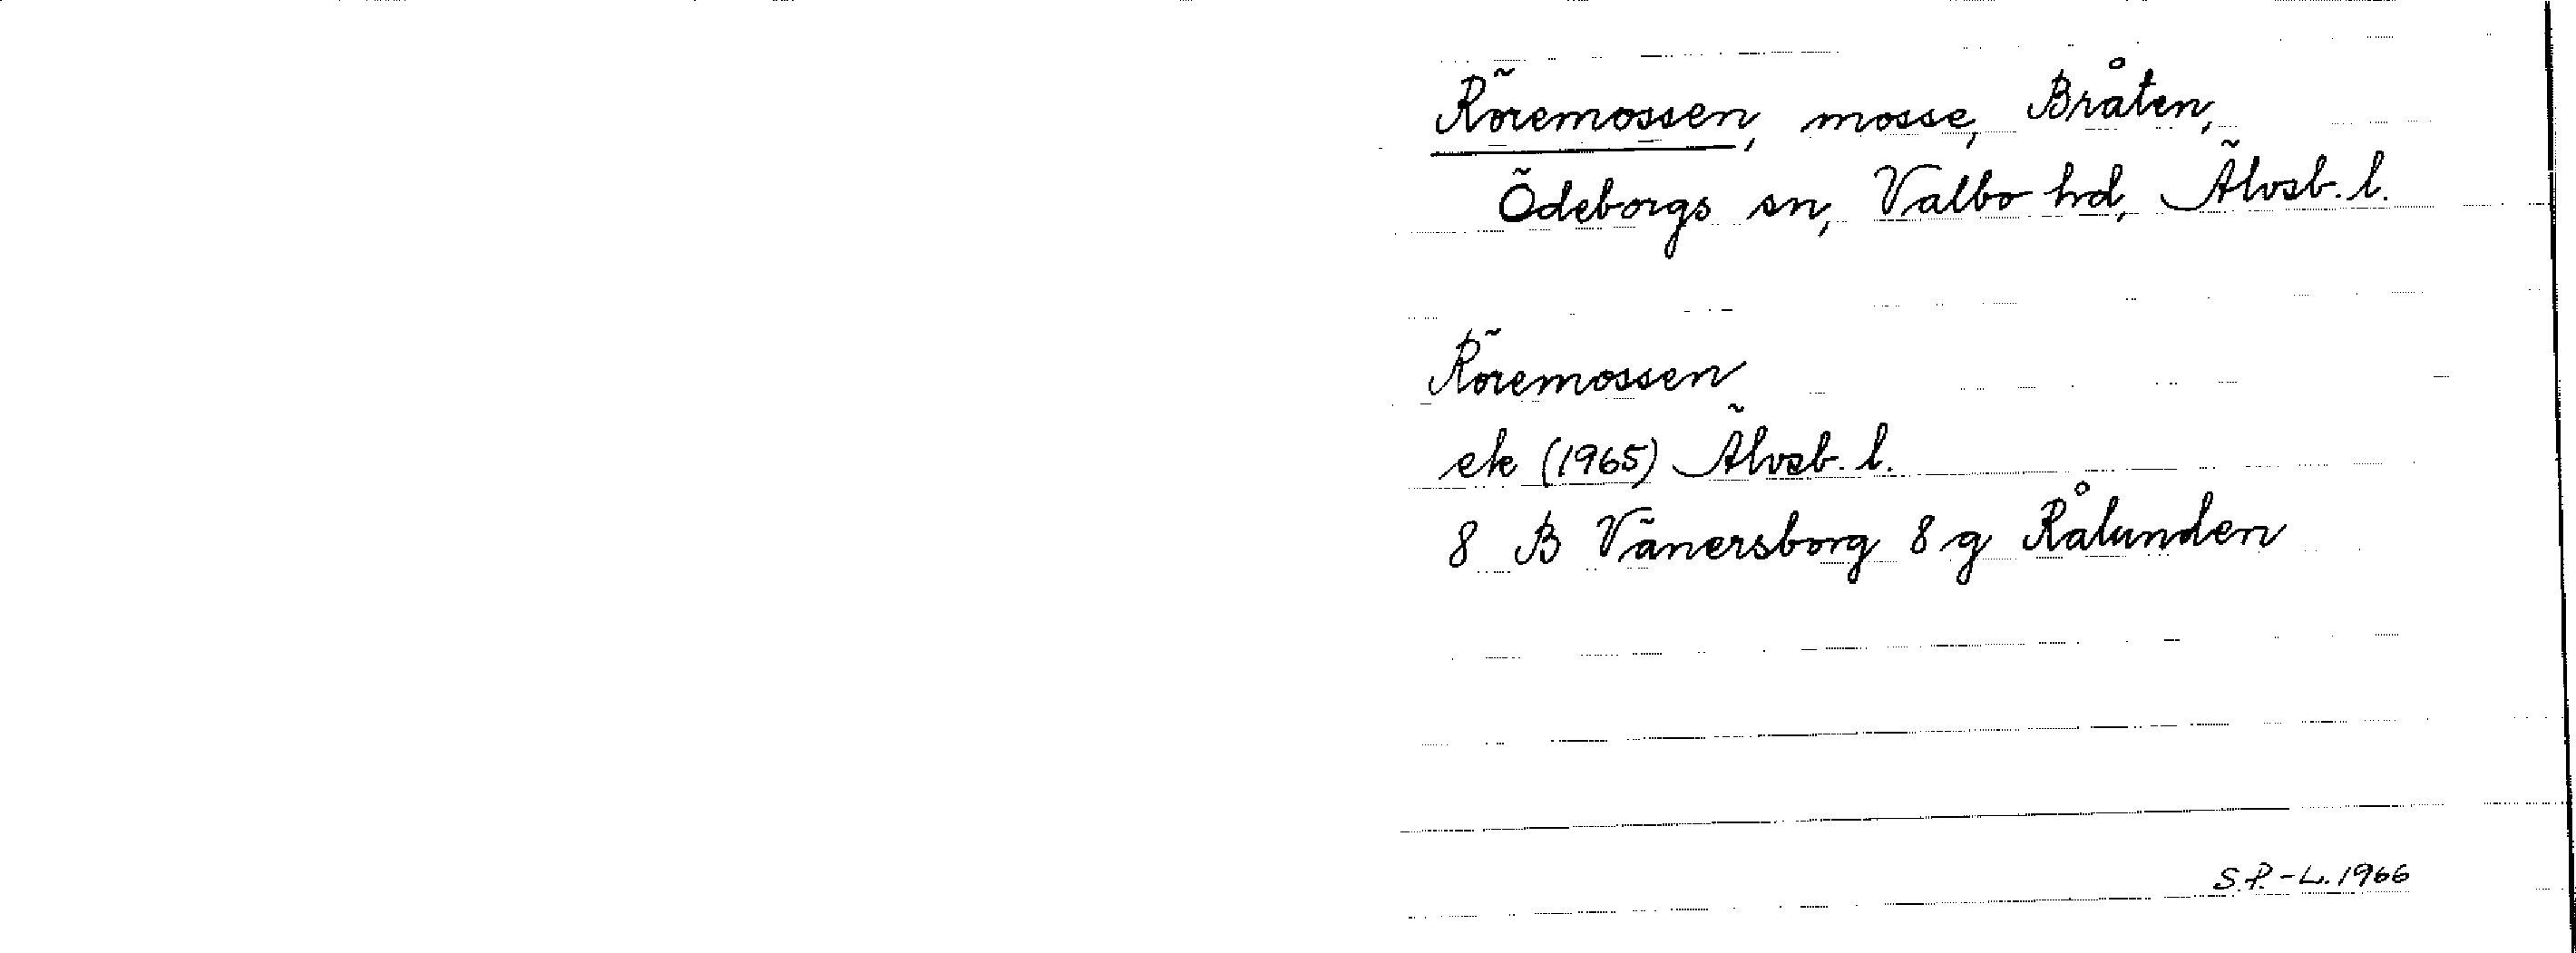 Röremossen, mosse, Bråten,
Ödeborgs sn, Valbo hd, Älvsb. l.
Röremossen
ek (1965) Älvsb. l.
8 B Vänersborg 8 g Rålunden
S.P.-L. 1966